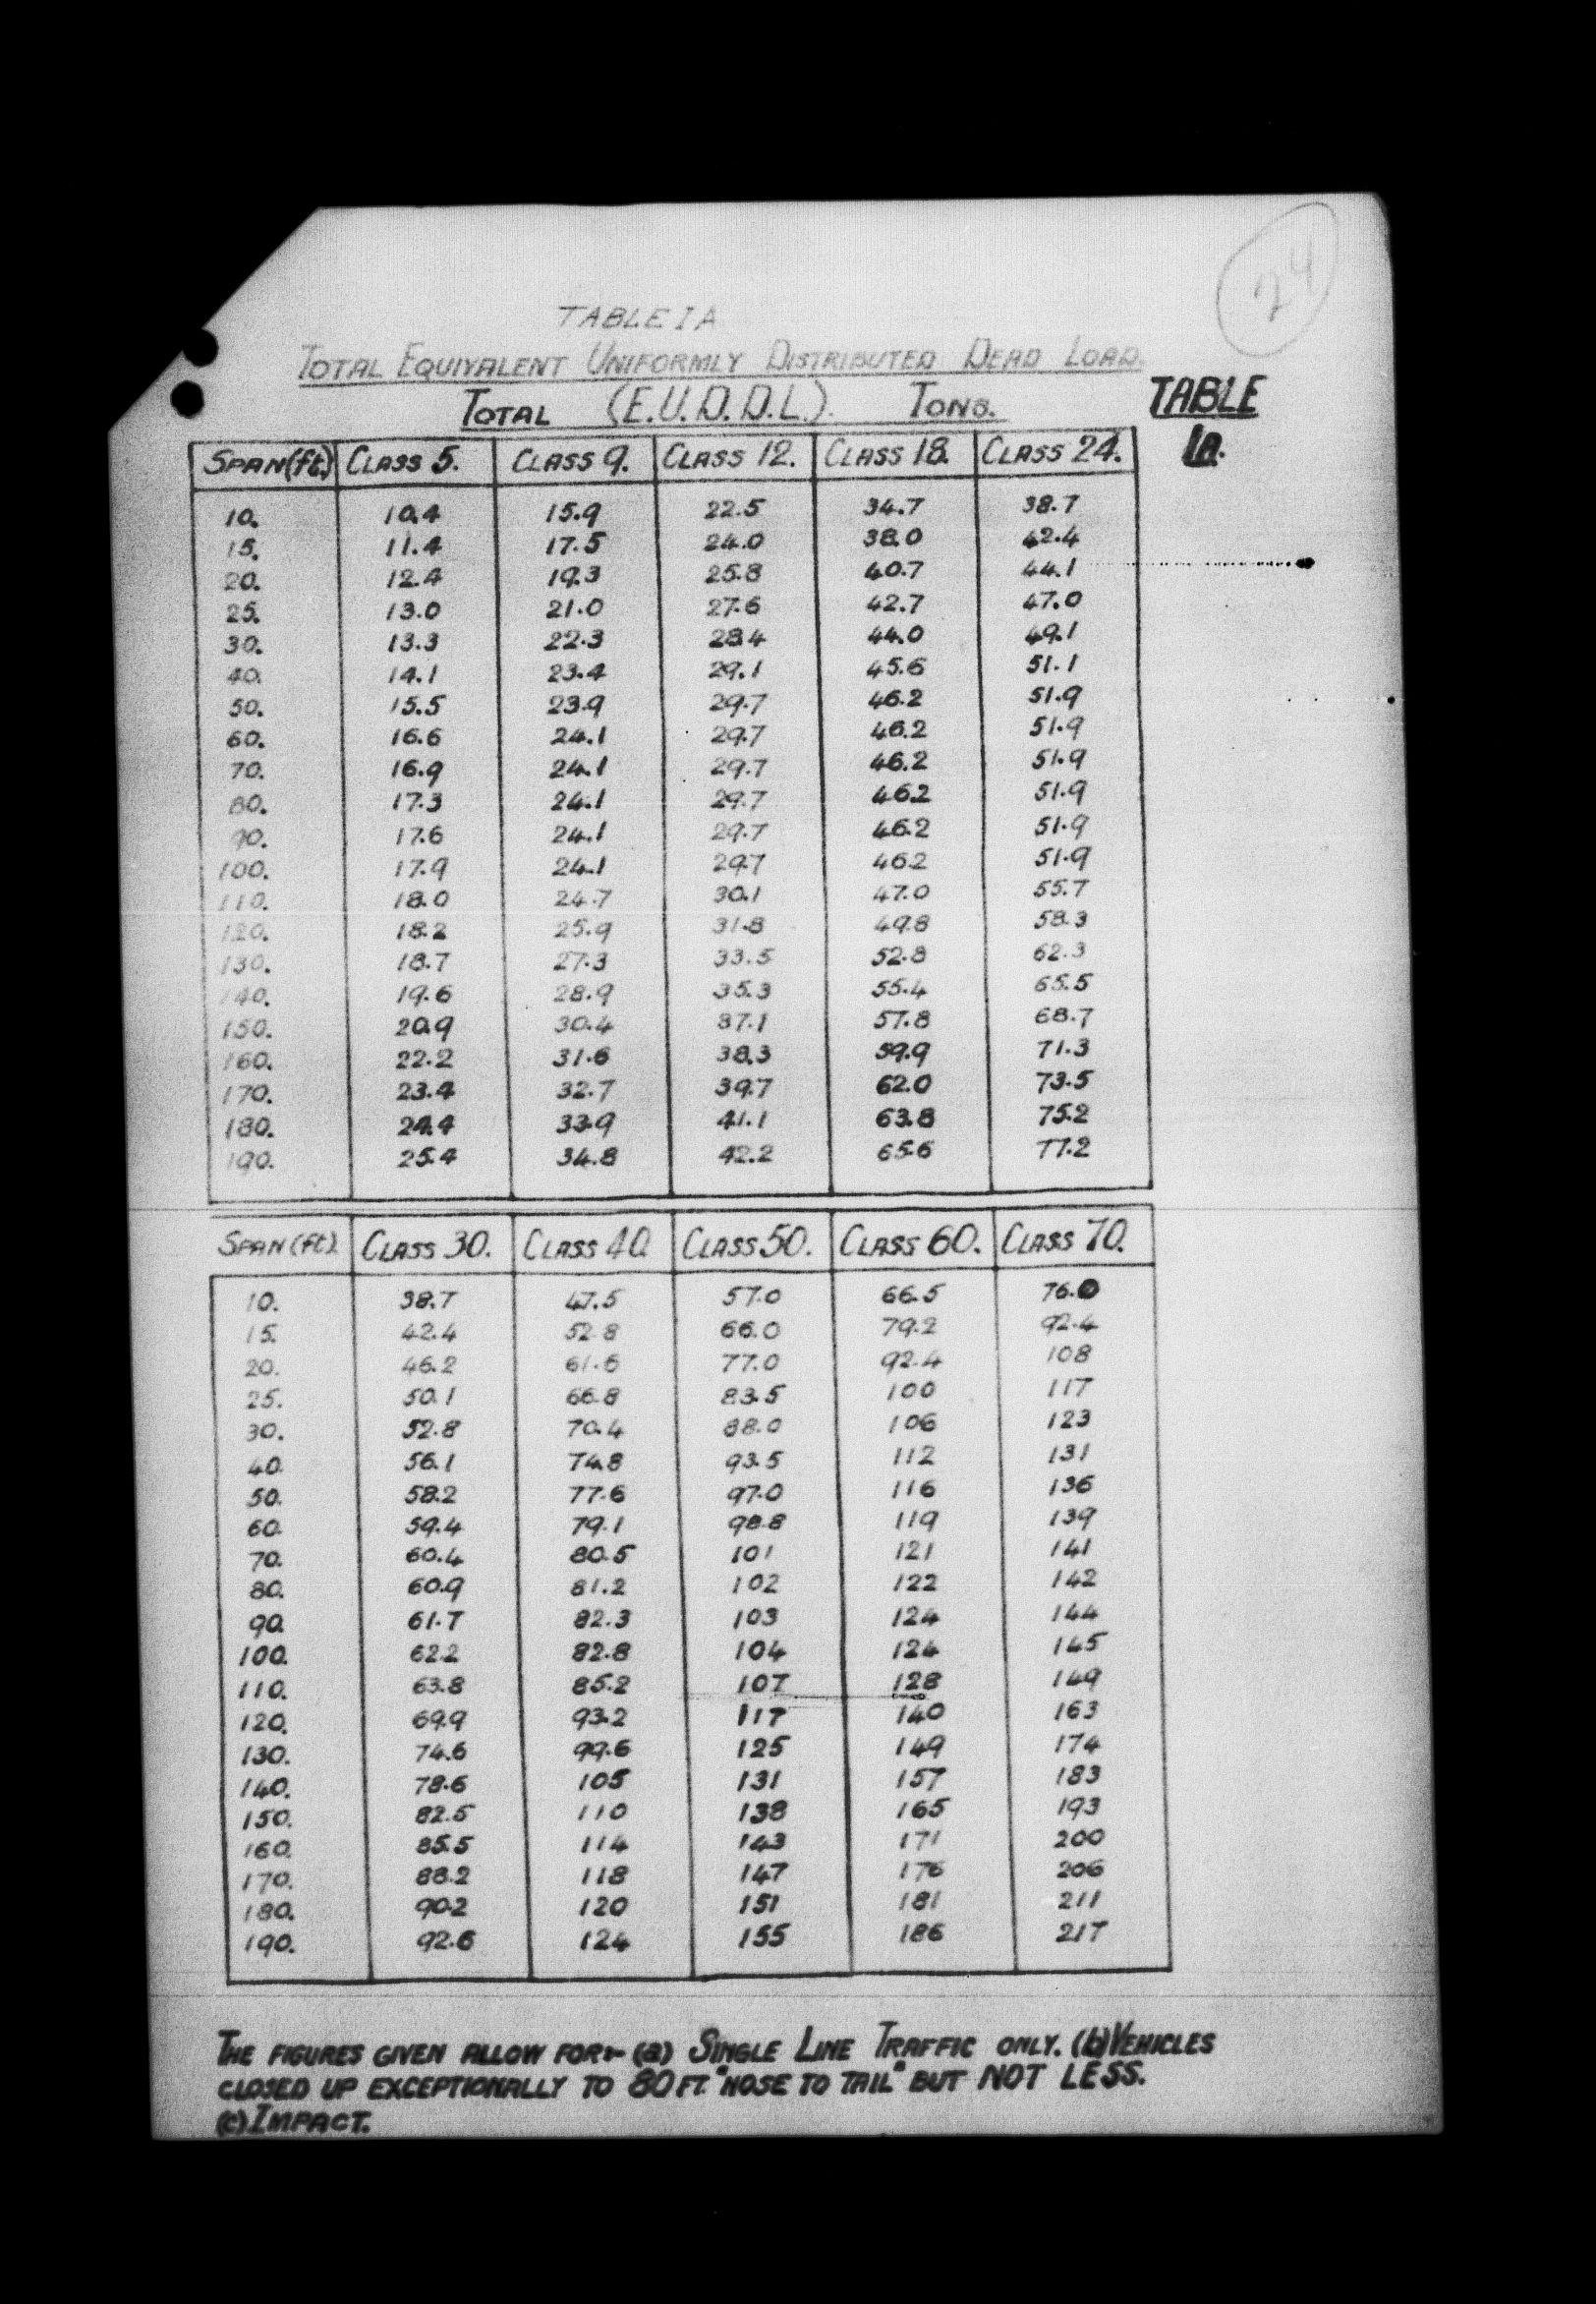 24
TABLE I A
TOTAL EQUIVALENT UNIFORMLY DISTRIBUTED DEAD LOAD.
TOTAL (E.U.D.D.L.). TONS.
TABLE
1A.
SPAN(ft.) CLASS 5. CLASS 9. CLASS 12. CLASS 18. CLASS 24.
10. 10.4 15.9 22.5 34.7 38.7
15. 11.4 17.5 24.0 38.0 42.4
20. 12.4 19.3 25.8 40.7 44.1
25. 13.0 21.0 27.6 42.7 47.0
30. 13.3 22.3 28.4 44.0 49.1
40. 14.1 23.4 29.1 45.6 51.1
50. 15.5 23.9 29.7 46.2 51.9
60. 16.6 24.1 29.7 46.2 51.9
70. 16.9 24.1 29.7 46.2 51.9
80. 17.3 24.1 29.7 46.2 51.9
90. 17.6 24.1 29.7 46.2 51.9
100. 17.9 24.1 29.7 46.2 51.9
110. 18.0 24.7 30.1 47.0 55.7
120. 18.2 25.9 31.8 49.8 58.3
130. 18.7 27.3 33.5 52.8 62.3
140. 19.6 28.9 35.3 55.4 65.5
150. 20.9 30.4 37.1 57.8 68.7
160. 22.2 31.6 38.3 59.9 71.3
170. 23.4 32.7 39.7 62.0 73.5
180. 24.4 33.9 41.1 63.8 75.2
190. 25.4 34.8 42.2 65.6 77.2
SPAN(ft). CLASS 30. CLASS 40. CLASS 50. CLASS 60. CLASS 70.
10. 38.7 47.5 57.0 66.5 76.0
15. 42.4 52.8 66.0 79.2 92.4
20. 46.2 61.6 77.0 92.4 108
25. 50.1 66.8 83.5 100 117
30. 52.8 70.4 88.0 106 123
40. 56.1 74.8 93.5 112 131
50. 58.2 77.6 97.0 116 136
60. 59.4 79.1 98.8 119 139
70. 60.4 80.5 101 121 141
80. 60.9 81.2 102 122 142
90. 61.7 82.3 103 124 144
100. 62.2 82.8 104 124 145
110. 63.8 85.2 107 128 149
120. 69.9 93.2 117 140 163
130. 74.6 99.6 125 149 174
140. 78.6 105 131 157 183
150. 82.5 110 138 165 193
160. 85.5 114 143 171 200
170. 88.2 118 147 176 206
180. 90.2 120 151 181 211
190. 92.6 124 155 186 217
THE FIGURES GIVEN ALLOW FOR:- (a) SINGLE LINE TRAFFIC ONLY. (b) VEHICLES
CLOSED UP EXCEPTIONALLY TO 80 FT. "NOSE TO TAIL" BUT NOT LESS.
(c) IMPACT.